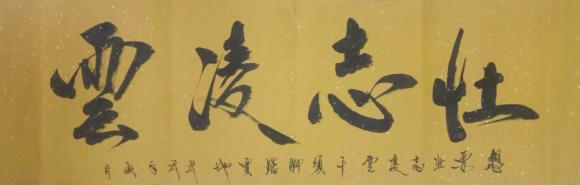 壮志凌雲
想要壮志凌雲干須脚踏實地